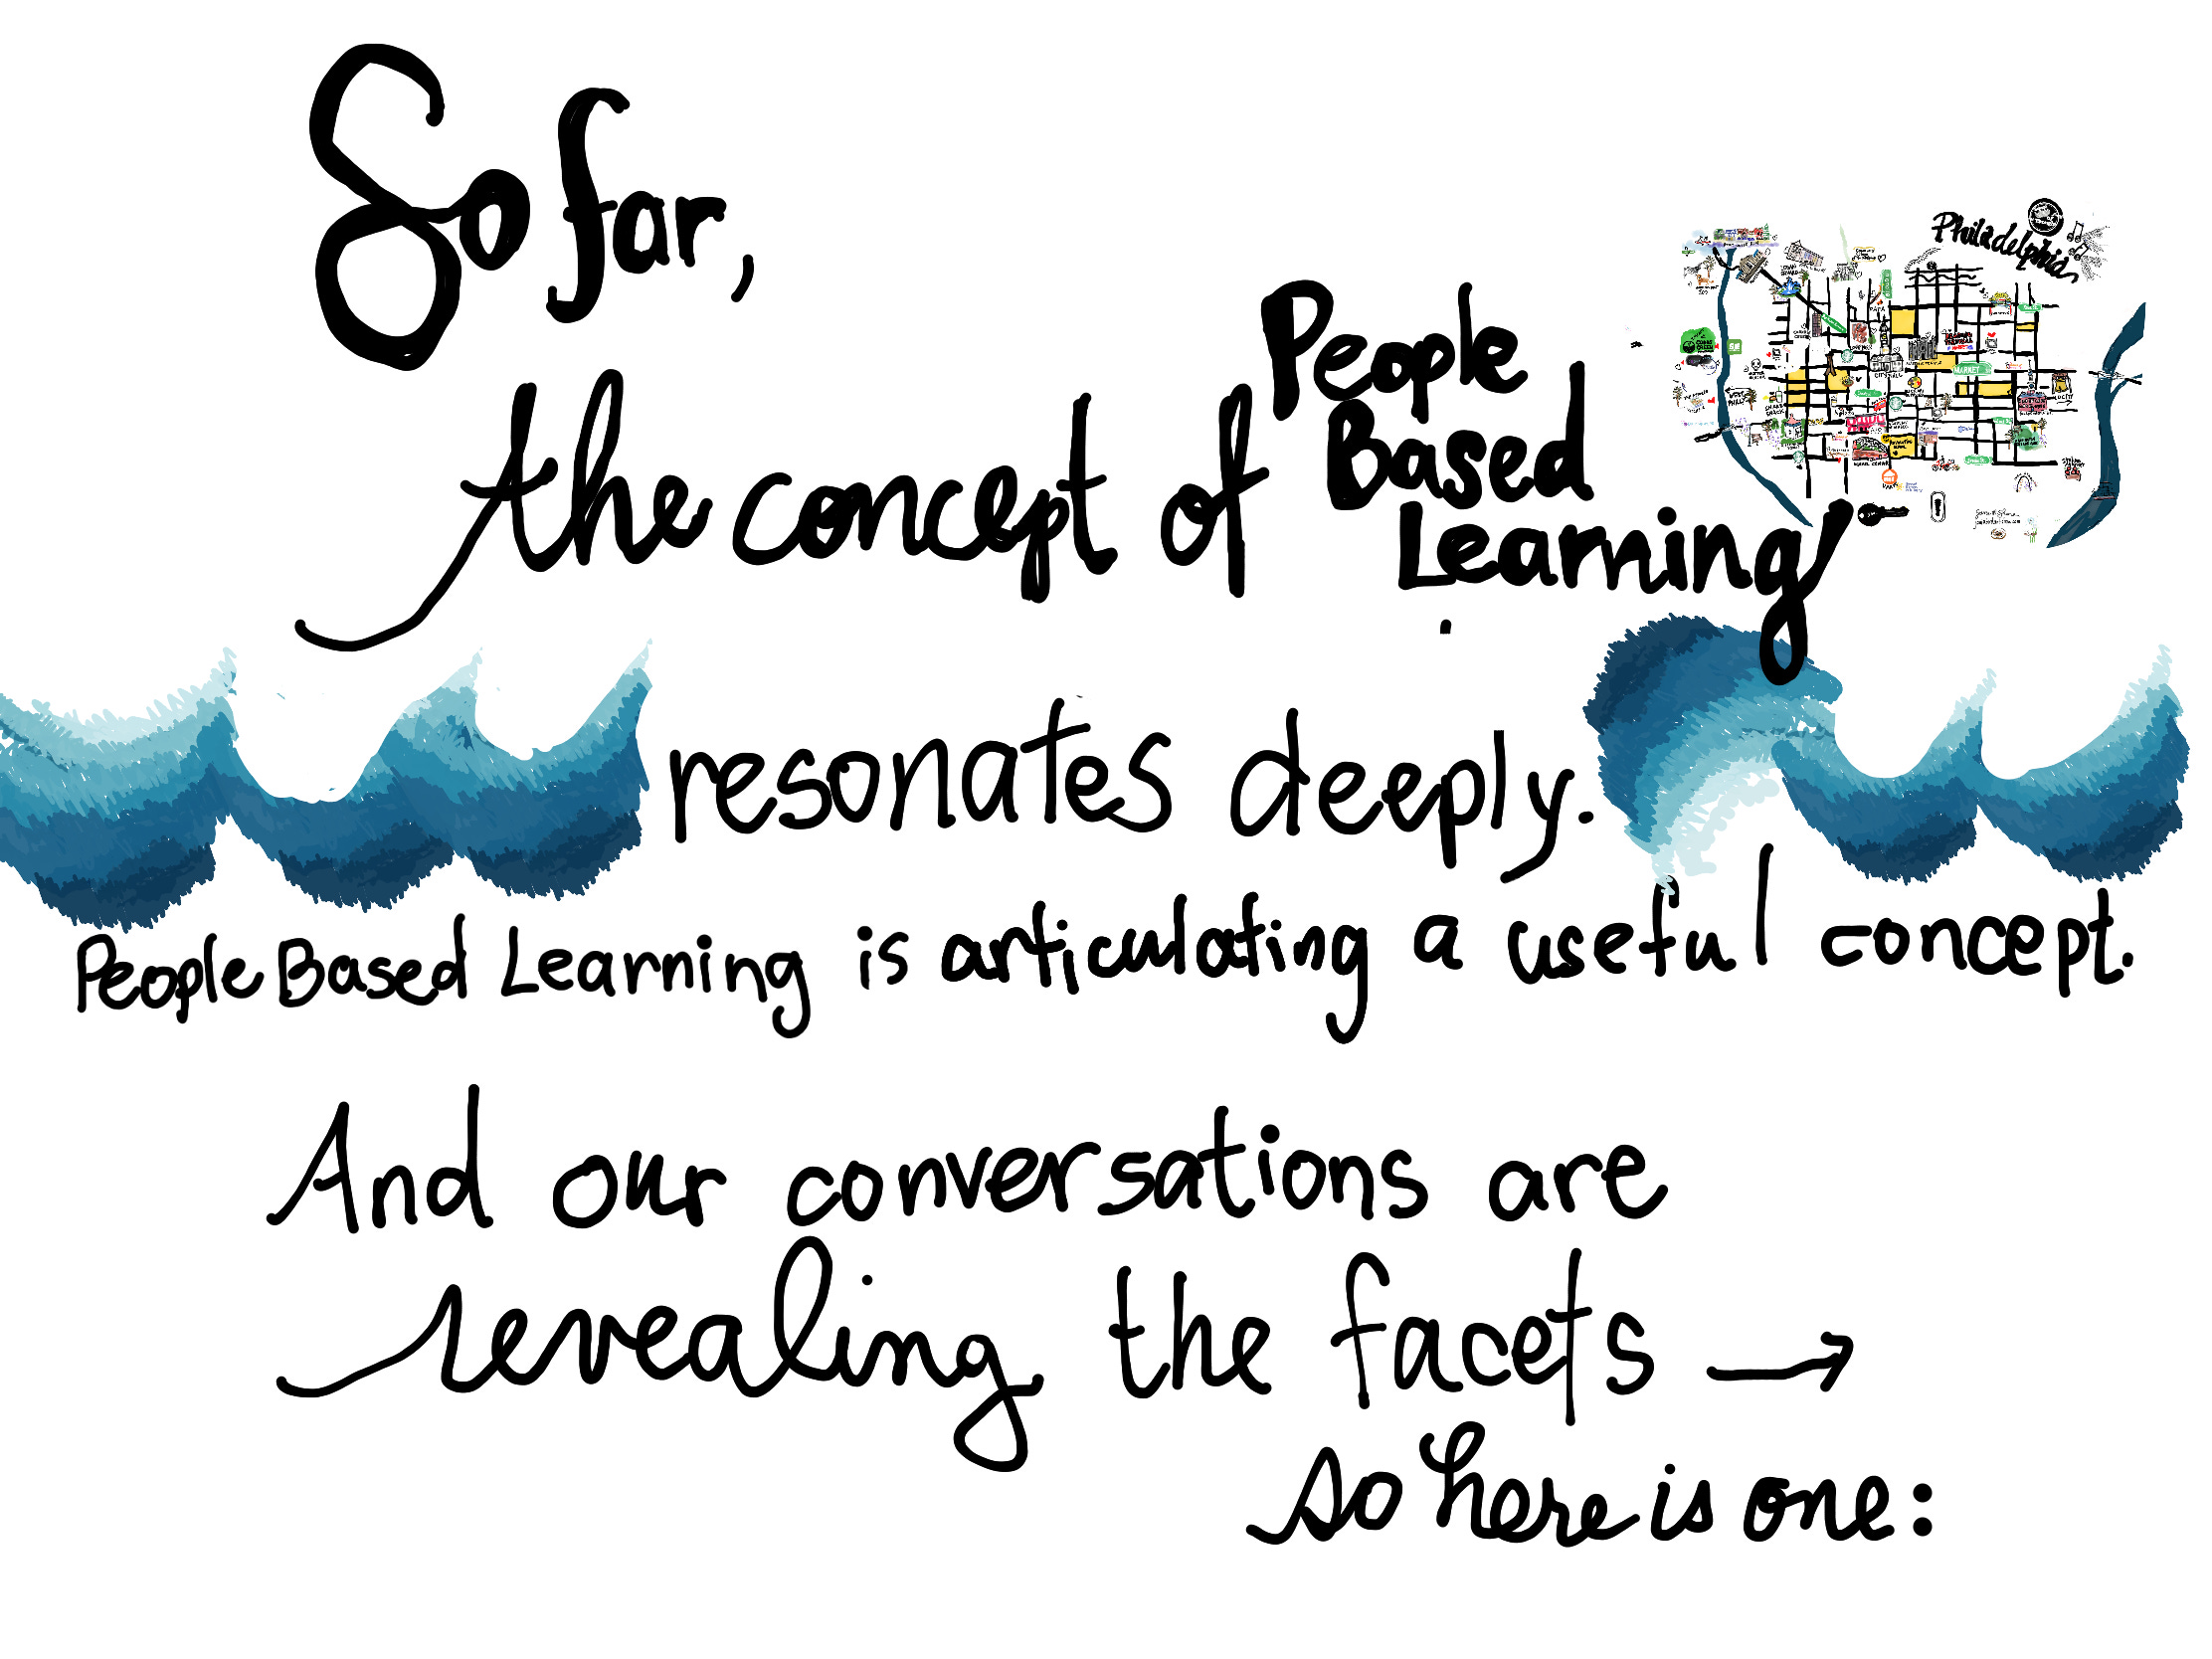 So far,
the concept of People
Based
Learning
resonates deeply.
People Based Learning is articulating a useful concept.
And our conversations are
revealing the facets →
so here is one:
Philadelphia
MARKET